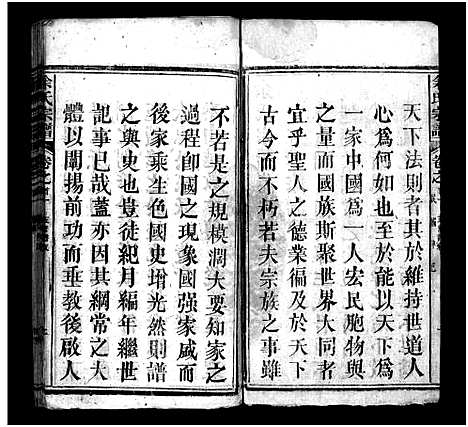 天下法則者其於維持世道人
心為何如也大而能以天下為
一家中國為一人宏民胞物與
之量而國族斯聚世界大同者
宜乎聖人之德業徧及於天下
古今而不朽若夫宗族之事雖
不若是之規模濶大要知家之
過程卽國之現象國强家盛而
後家乘生色國史增光然則譜
之與史也豈徒紀月編年繼世
記事已哉蓋亦因其綱常之大
體以闡揚前功而垂教後啟人
余氏宗譜
卷之一